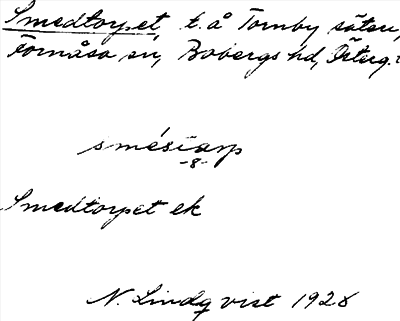 Smedtorpet, t. å Tornby säteri,
Fornåsa sn, Bobergs hd, Österg.
smésiarp
-8-
Smedtorpet ek
N. Lindqvist 1928